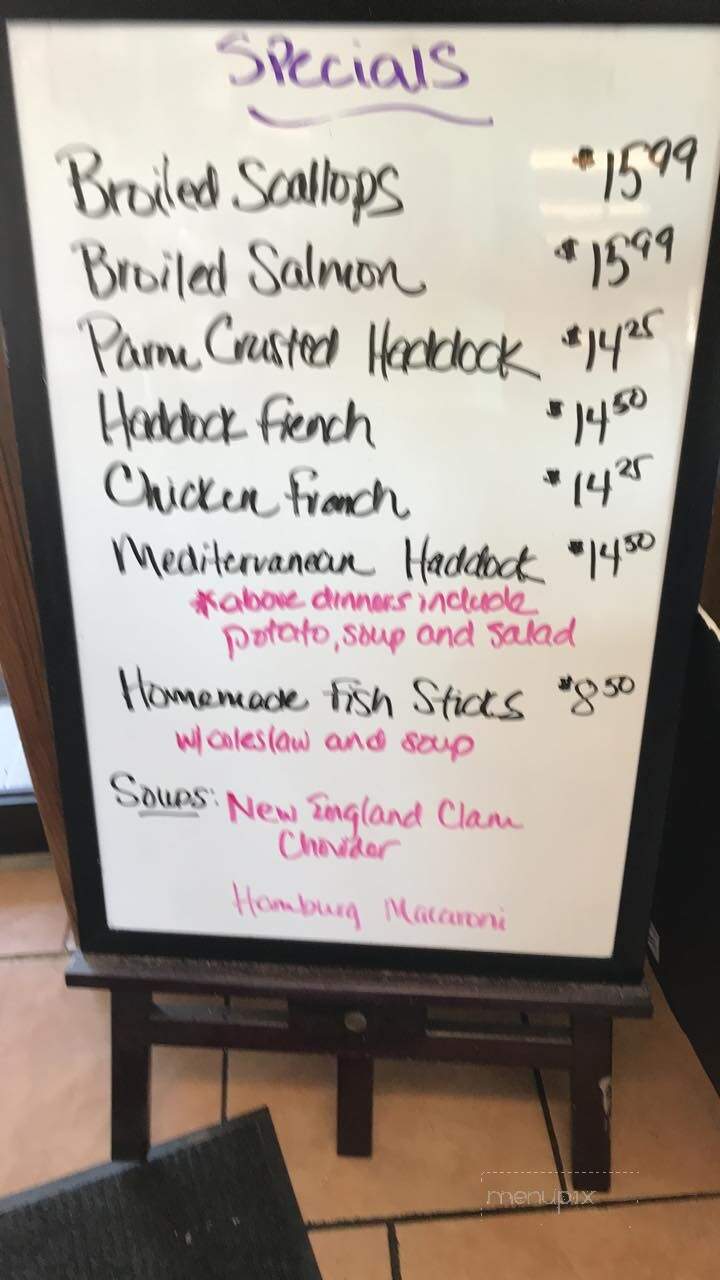 Specials
Broiled Scallops $15.99
Broiled Salmon $15.99
Parm Crusted Haddock $14.25
Haddock French $14.50
Chicken French $14.25
Mediterranean Haddock $14.50
*above dinners include
potato, soup and salad
Homemade Fish Sticks $8.50
w/ coleslaw and soup
Soups: New England Clam
Chowder
Hamburg Macaroni
menupix